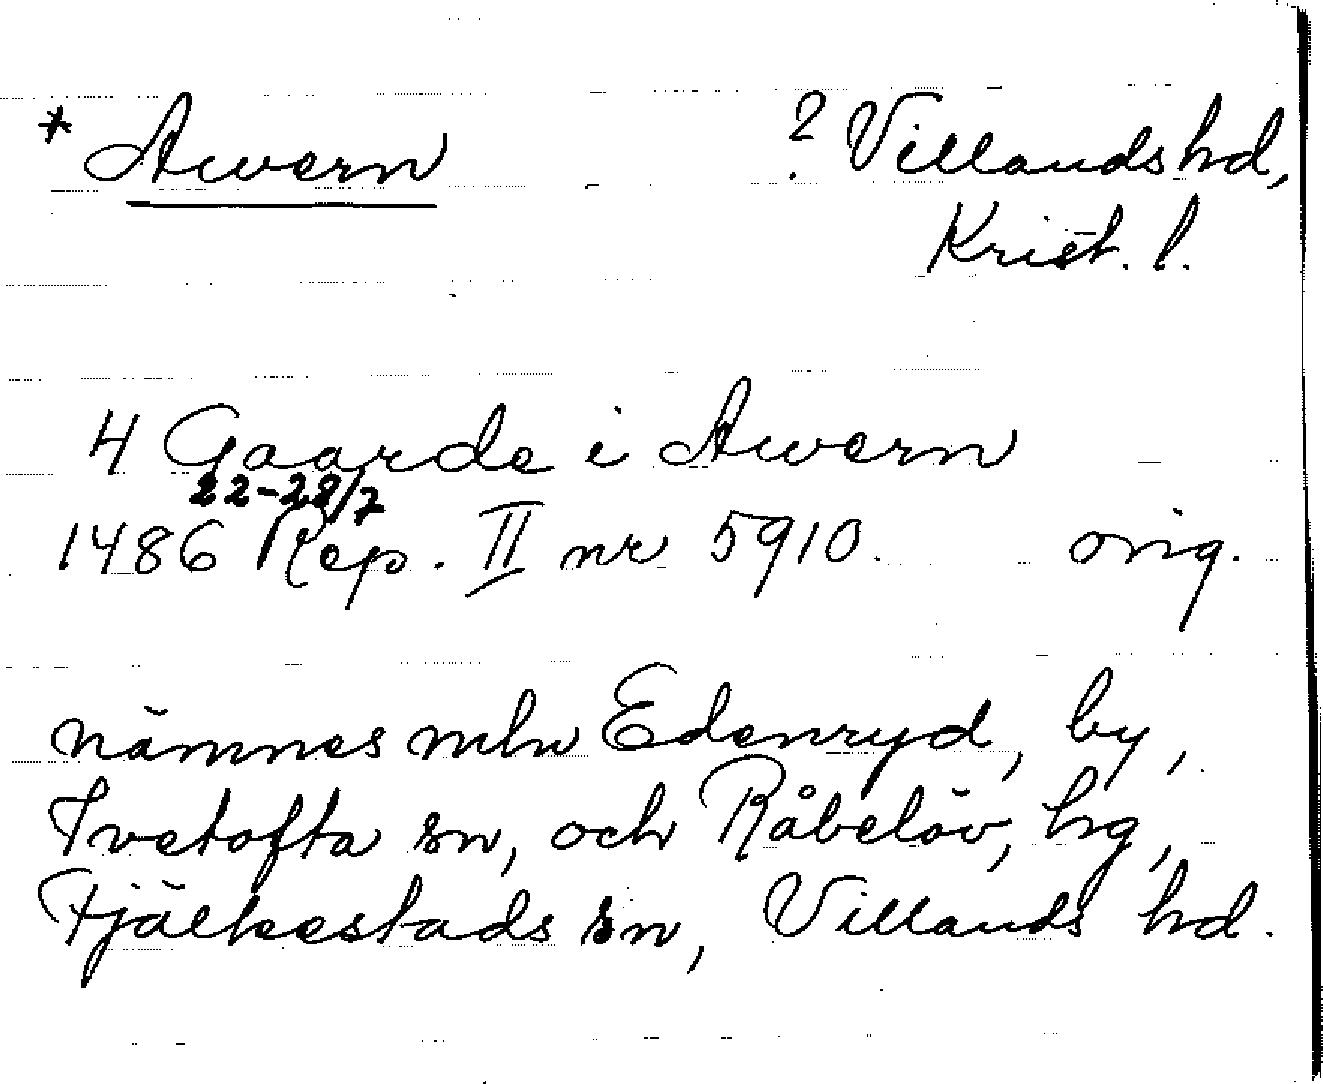 * Awern ? Villands hd,
Krist. l.
4 Gaarde i Awern
22-28/7
1486 Rep. II nr 5910. orig.
nämnes mln Edenryd, by,
Ivetofta sn, och Råbelöv, hg,
Fjälkestads sn, Villands hd.